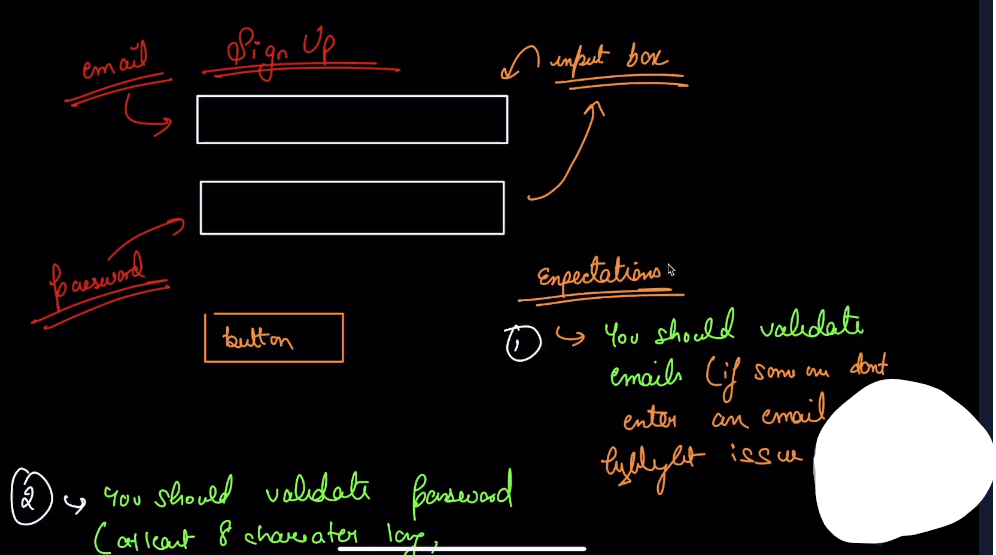 Sign Up
email
input box
password
button
Expectations
1 You should validate
emails (if some one dont
enter an email
highlight issue
2 You should validate password
(atleast 8 charecater long,